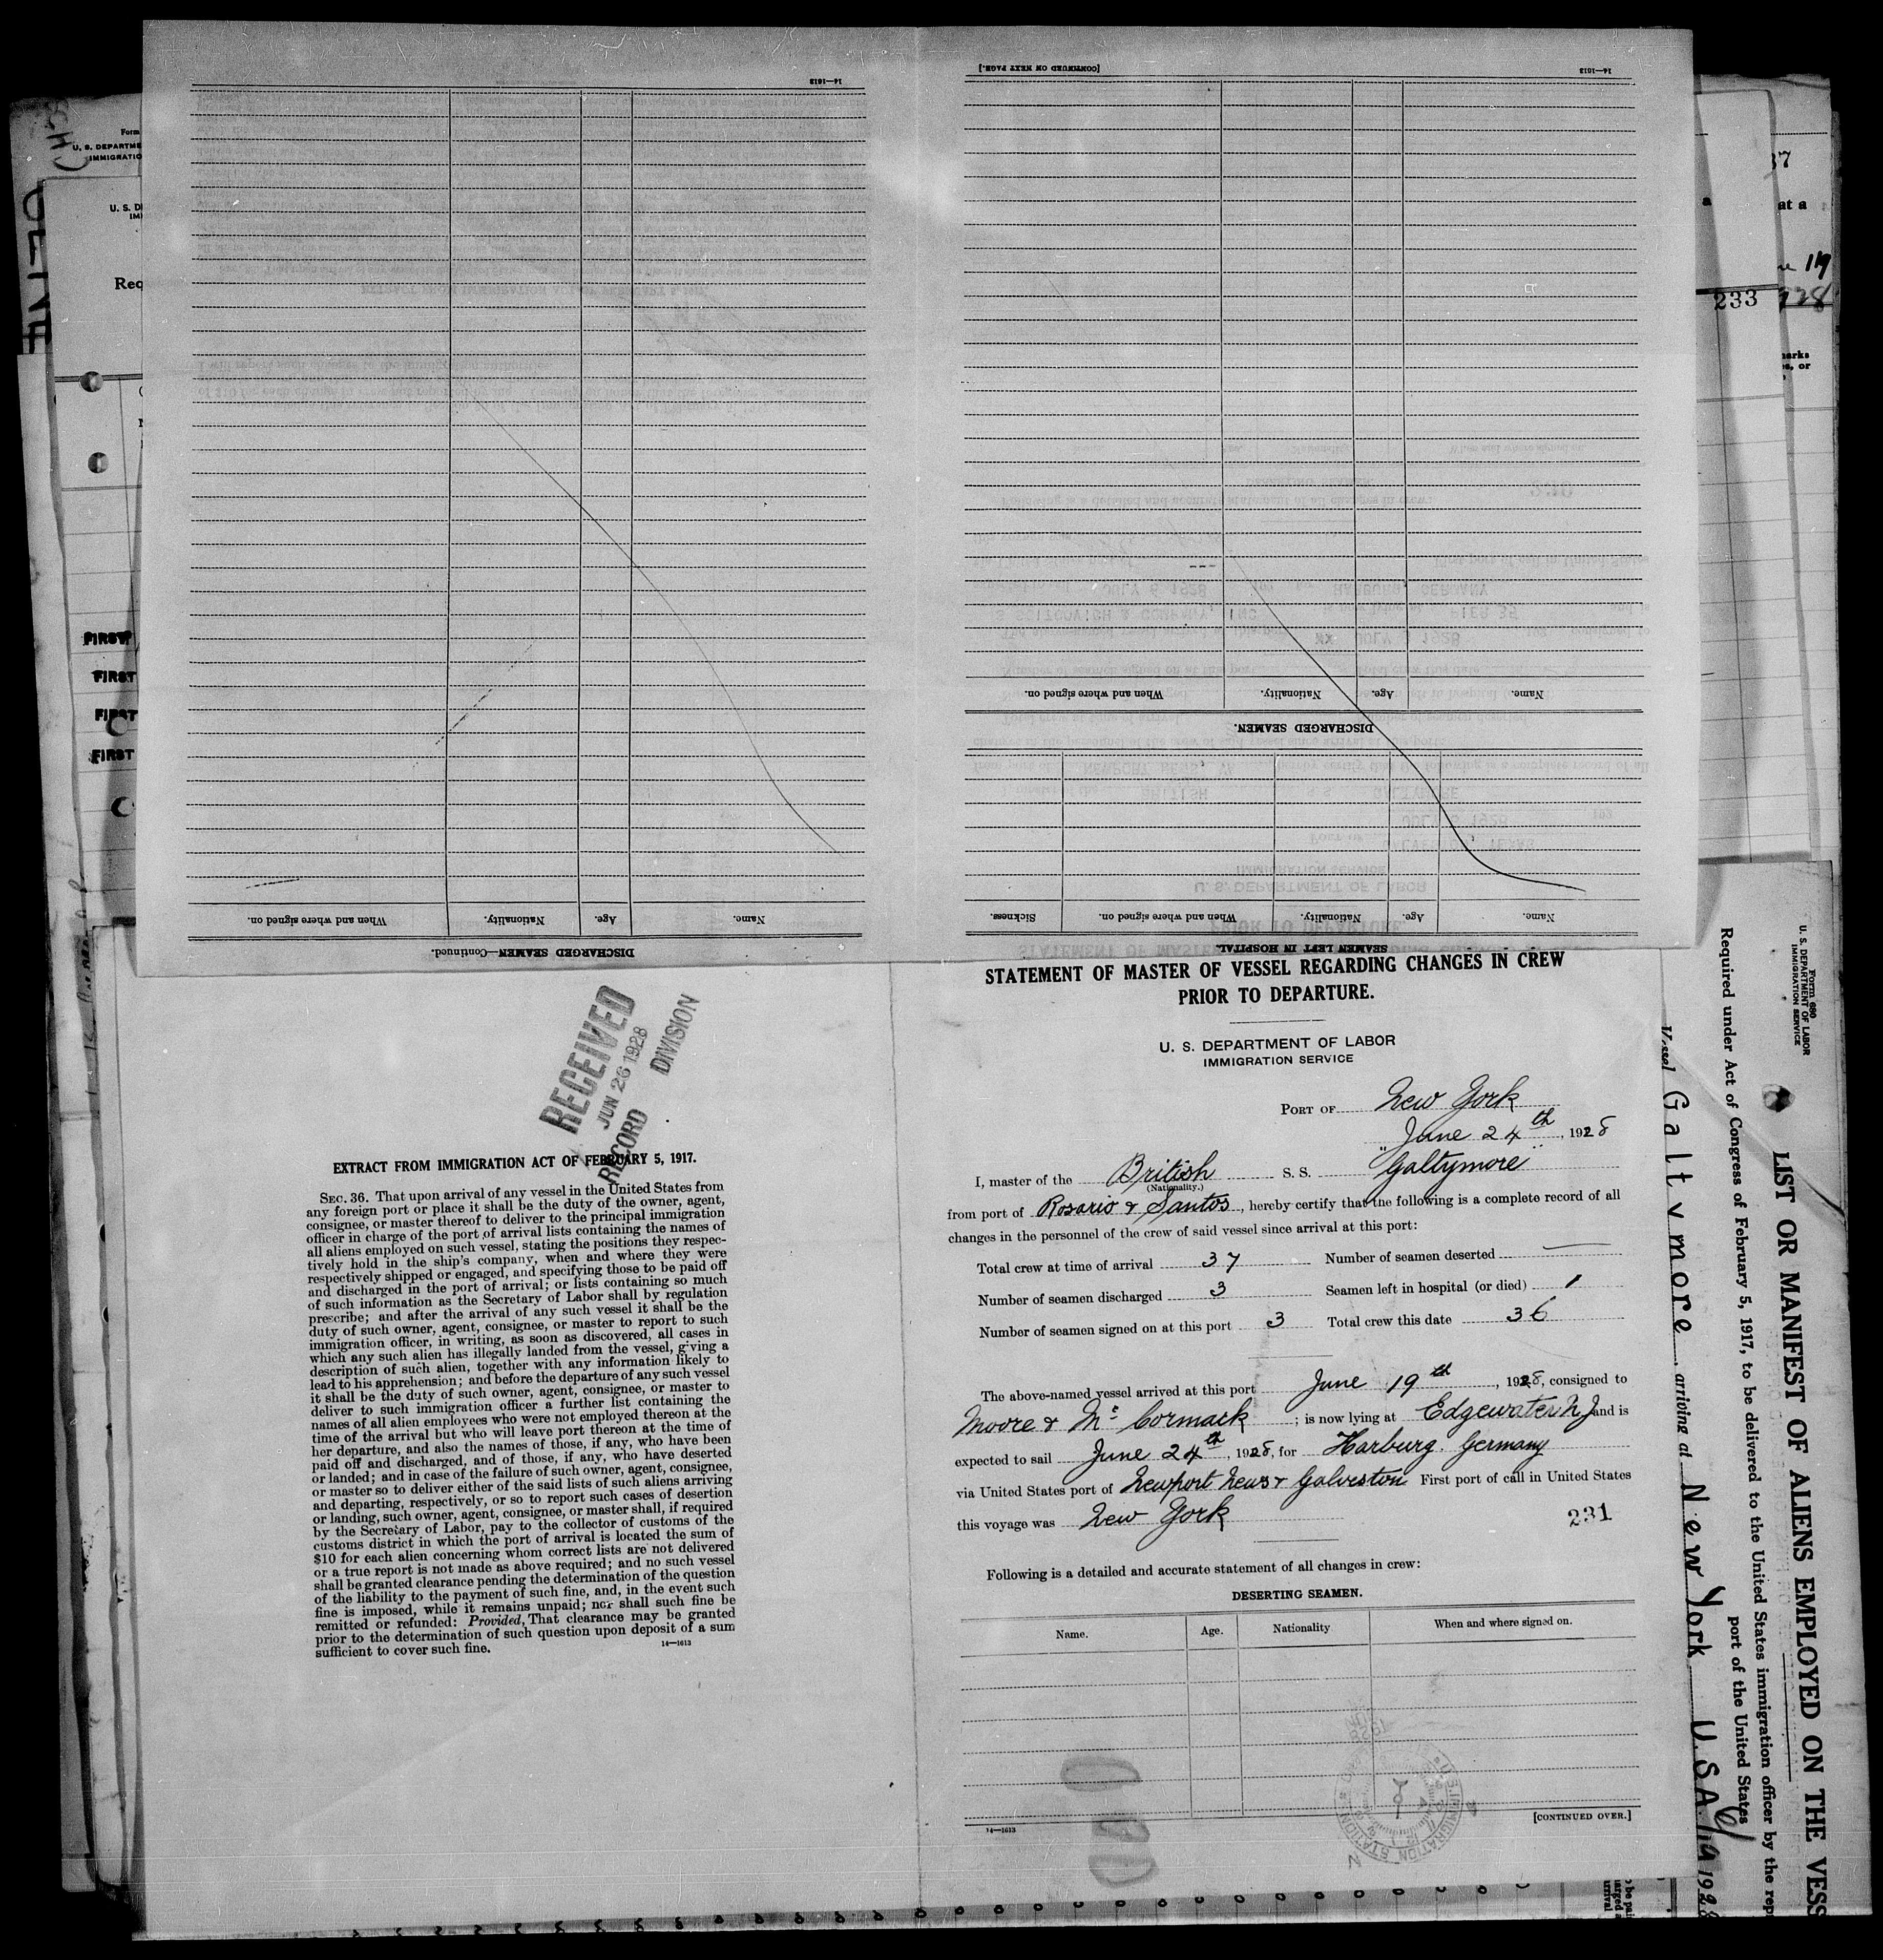 [CONTINUED ON NEXT PAGE.]
14—1613
14—1613
When and where signed on.
Nationality.
Age.
Name.
DISCHARGED SEAMEN.
Sickness.
When and where signed on.
Nationality.
Age.
Name.
SEAMEN LEFT IN HOSPITAL.
When and where signed on.
Nationality.
Age.
Name.
DISCHARGED SEAMEN—Continued.
Form
U. S. DEPARTME
IMMIGRATIO
U. S. D
Req
FIRST
FIRST
FIRST
FIRST
37
at a
233
RECEIVED
JUN 26 1928
RECORD DIVISION
EXTRACT FROM IMMIGRATION ACT OF FEBRUARY 5, 1917.
SEC. 36. That upon arrival of any vessel in the United States from
any foreign port or place it shall be the duty of the owner, agent,
consignee, or master thereof to deliver to the principal immigration
officer in charge of the port of arrival lists containing the names of
all aliens employed on such vessel, stating the positions they respec-
tively hold in the ship's company, when and where they were
respectively shipped or engaged, and specifying those to be paid off
and discharged in the port of arrival; or lists containing so much
of such information as the Secretary of Labor shall by regulation
prescribe; and after the arrival of any such vessel it shall be the
duty of such owner, agent, consignee, or master to report to such
immigration officer, in writing, as soon as discovered, all cases in
which any such alien has illegally landed from the vessel, giving a
description of such alien, together with any information likely to
lead to his apprehension; and before the departure of any such vessel
it shall be the duty of such owner, agent, consignee, or master to
deliver to such immigration officer a further list containing the
names of all alien employees who were not employed thereon at the
time of the arrival but who will leave port thereon at the time of
her departure, and also the names of those, if any, who have been
paid off and discharged, and of those, if any, who have deserted
or landed; and in case of the failure of such owner, agent, consignee,
or master so to deliver either of the said lists of such aliens arriving
and departing, respectively, or so to report such cases of desertion
or landing, such owner, agent, consignee, or master shall, if required
by the Secretary of Labor, pay to the collector of customs of the
customs district in which the port of arrival is located the sum of
$10 for each alien concerning whom correct lists are not delivered
or a true report is not made as above required; and no such vessel
shall be granted clearance pending the determination of the question
of the liability to the payment of such fine, and, in the event such
fine is imposed, while it remains unpaid; nor shall such fine be
remitted or refunded: Provided, That clearance may be granted
prior to the determination of such question upon deposit of a sum
sufficient to cover such fine.
14—1613
STATEMENT OF MASTER OF VESSEL REGARDING CHANGES IN CREW
PRIOR TO DEPARTURE.
U. S. DEPARTMENT OF LABOR
IMMIGRATION SERVICE
PORT OF New York
June 24th, 1928
I, master of the British S. S. "Galtymore"
(Nationality.)
from port of Rosario & Santos, hereby certify that the following is a complete record of all
changes in the personnel of the crew of said vessel since arrival at this port:
Total crew at time of arrival 37 Number of seamen deserted —
Number of seamen discharged 3 Seamen left in hospital (or died) 1
Number of seamen signed on at this port 3 Total crew this date 36
The above-named vessel arrived at this port June 19th, 1928, consigned to
Moore & McCormack; is now lying at Edgewater N J and is
expected to sail June 24th, 1928, for Harburg. Germany
via United States port of Newport News & Galveston First port of call in United States
this voyage was New York
231
Following is a detailed and accurate statement of all changes in crew:
DESERTING SEAMEN.
Name. Age. Nationality When and where signed on.
14—1613
[CONTINUED OVER.]
Form 680
U. S. DEPARTMENT OF LABOR
IMMIGRATION SERVICE
LIST OR MANIFEST OF ALIENS EMPLOYED ON THE VESS
Required under Act of Congress of February 5, 1917, to be delivered to the United States immigration officer by the rep
port of the United States
Vessel Galtymore, arriving at New York U.S.A. 6/19 1928